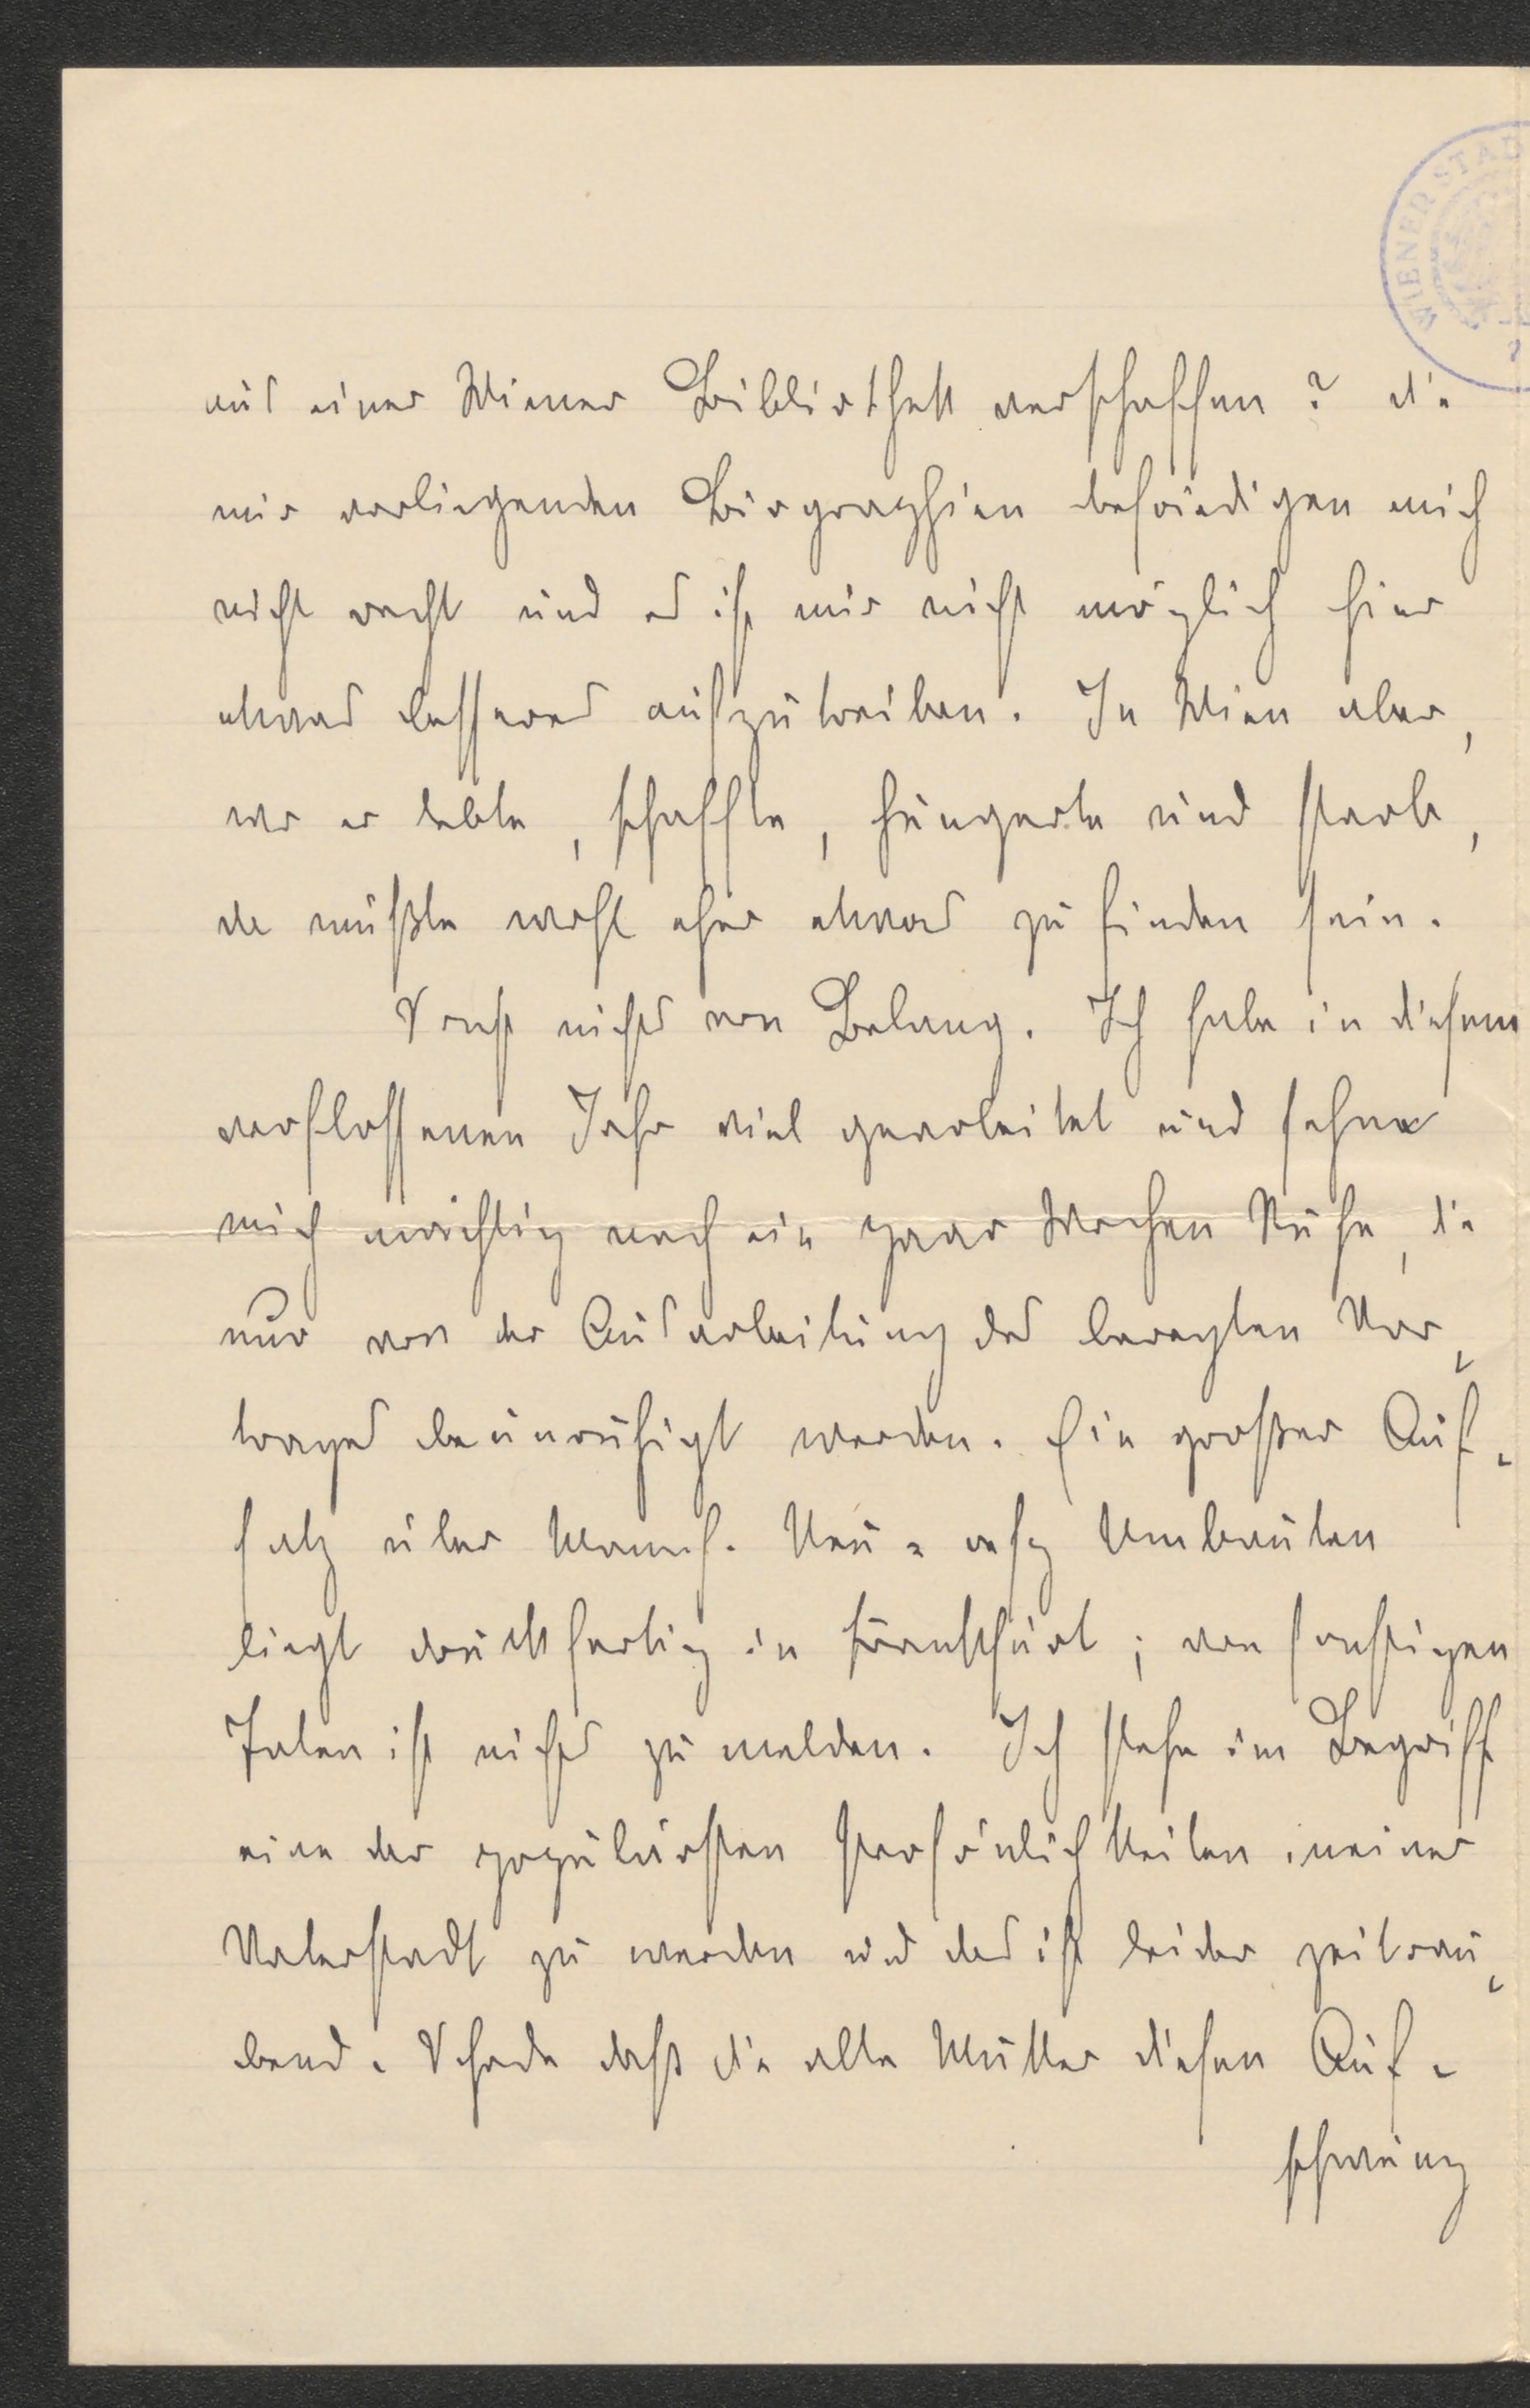 WIENER STAD
aus einer Wiener Bibliothek verschaffen? die
mir vorliegenden Biographien befriedigen mich
nicht recht und es ist mir nicht möglich hier
etwas besseres aufzutreiben. In Wien aber,
wo er lebte, schaffte, hungerte und starb,
da müßte wohl eher etwas zu finden sein.
Sonst nichts von Belang. Ich habe in diesem
verflossenen Jahr viel gearbeitet und sehne
mich mächtig nach ein paar Wochen Ruhe, die
nur von der Ausarbeitung des beregten Vor-
trages beunruhigt werden. Ein großer Auf-
satz über Mannh. Neu- resp Umbauten
liegt druckfertig in Frankfurt; von sonstigen
Taten ist nichts zu melden. Ich stehe im Begriff
eine der populärsten Persönlichkeiten meiner
Vaterstadt zu werden und das ist leider zeitrau-
bend. Schade daß die alte Mutter diesen Auf-
schwung